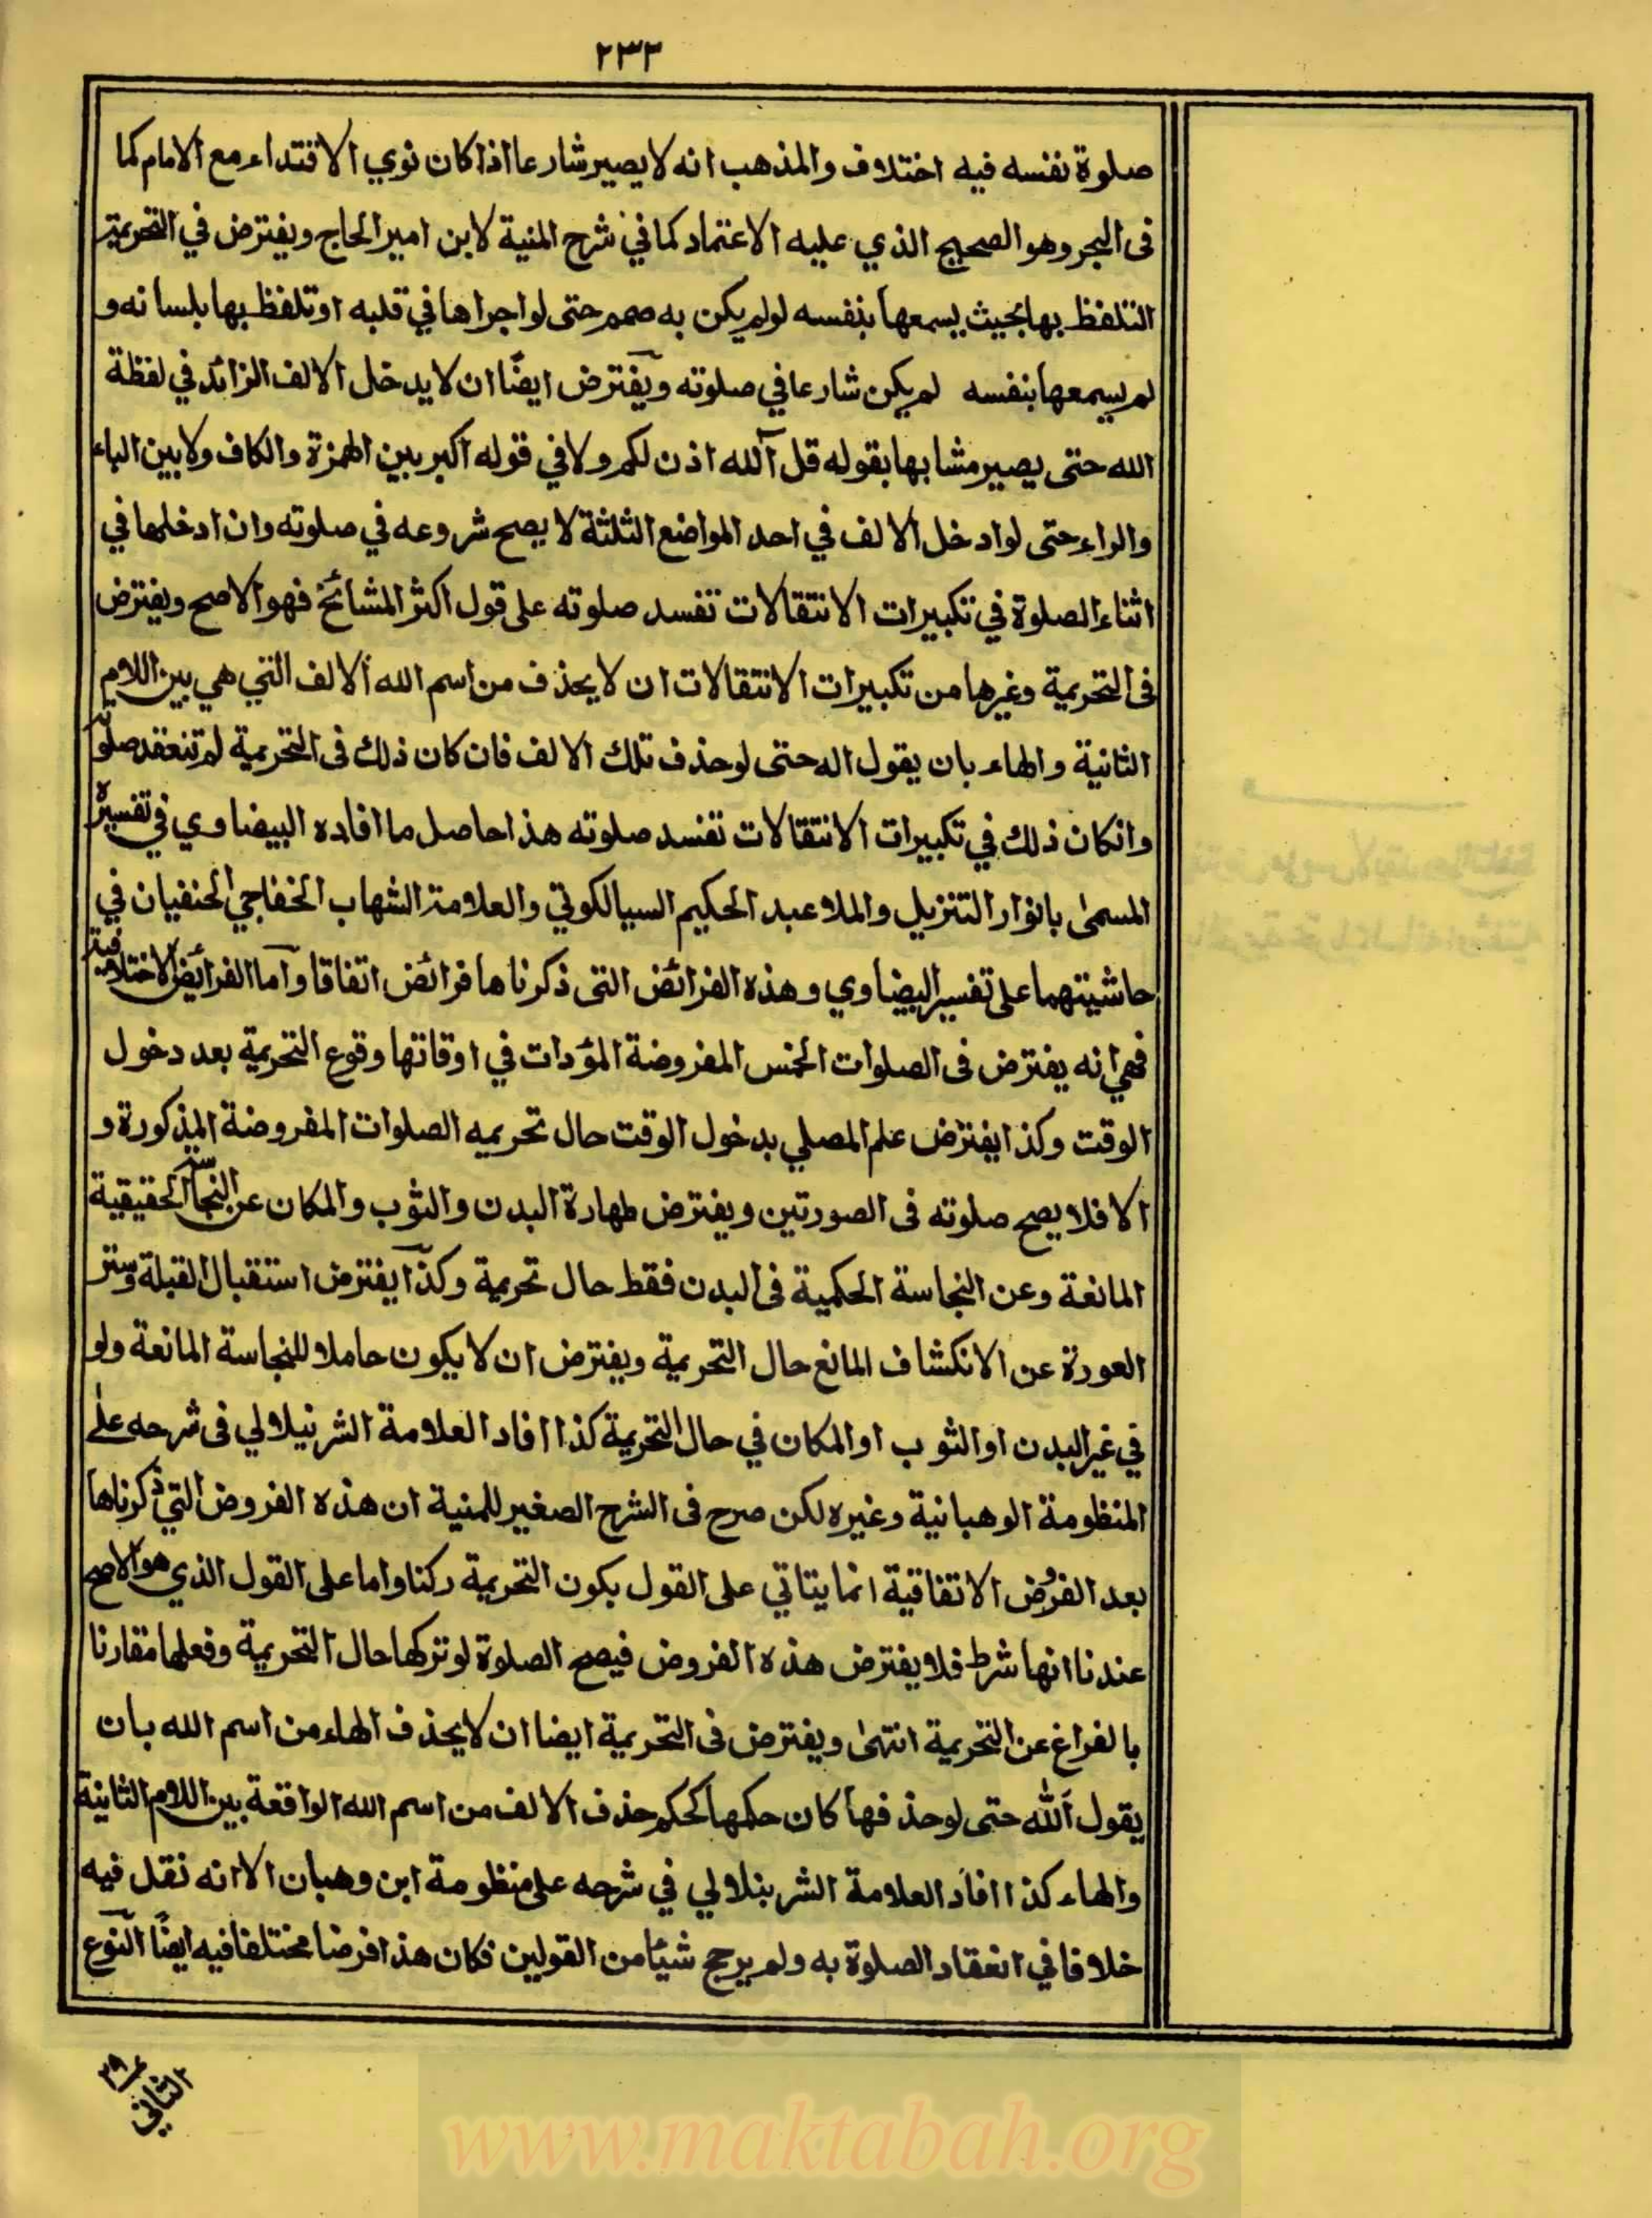 ٢٣٣
صلوة نفسه فيه اختلاف والمذهب انه لا يصير شارعا اذا كان نوي الاقتداء مع الامام كما
فى البحر وهو الصحيح الذي عليه الاعتماد كما في شرح المنية لابن امير الحاج ويفترض في التحريمة
التلفظ بها بحيث يسمعها بنفسه لو لم يكن به صمم حتى لو اجراها في قلبه او تلفظ بها بلسانه و
لم يسمعها بنفسه لم يكن شارعا في صلوته ويفترض ايضًا ان لا يدخل الالف الزائد في لفظة
الله حتى يصير مشابها بقوله قل آلله اذن لكم ولا في قوله اكبر بين الهمزة والكاف ولا بين الباء
والراء حتى لو ادخل الالف في احد المواضع الثلثة لا يصح شروعه في صلوته وان ادخلها في
اثناء الصلوة في تكبيرات الانتقالات تفسد صلوته على قول اكثر المشائخ فهو الاصح ويفترض
فى التحريمة وغيرها من تكبيرات الانتقالات ان لا يحذف من اسم الله الالف التي هي بين اللام
الثانية والهاء بان يقول اله حتى لو حذف تلك الالف فان كان ذلك فى التحريمة لم تنعقد صلوته
وانكان ذلك في تكبيرات الانتقالات تفسد صلوته هذا حاصل ما افاده البيضاوي في تفسيره
المسمى بانوار التنزيل والملا عبد الحكيم السيالكوتي والعلامة الشهاب الخفاجي الحنفيان في
حاشيتهما على تفسير البيضاوي وهذه الفرائض التى ذكرناها فرائض اتفاقا واما الفرائض الاختلافية
فهي انه يفترض فى الصلوات الخمس المفروضة المؤدات في اوقاتها وقوع التحريمة بعد دخول
الوقت وكذا يفترض علم المصلي بدخول الوقت حال تحريمه الصلوات المفروضة المذكورة و
الا فلا يصح صلوته فى الصورتين ويفترض طهارة البدن والثوب والمكان عن النجاسة الحقيقية
المانعة وعن النجاسة الحكمية فى البدن فقط حال تحريمة وكذا يفترض استقبال القبلة وستر
العورة عن الانكشاف المانع حال التحريمة ويفترض ان لا يكون حاملا للنجاسة المانعة ولو
في غير البدن او الثوب او المكان في حال التحريمة كذا افاد العلامة الشرنبلالي فى شرحه على
المنظومة الوهبانية وغيره لكن صرح فى الشرح الصغير للمنية ان هذه الفروض التي ذكرناها
بعد الفروض الاتفاقية انما يتاتي على القول بكون التحريمة ركنا واما على القول الذي هو الاصح
عندنا انها شرط فلا يفترض هذه الفروض فيصح الصلوة لو تركها حال التحريمة وفعلها مقارنا
بالفراغ عن التحريمة انتهى ويفترض فى التحريمة ايضا ان لا يحذف الهاء من اسم الله بان
يقول الله حتى لو حذفها كان حكمها كحكم حذف الالف من اسم الله الواقعة بين اللام الثانية
والهاء كذا افاد العلامة الشرنبلالي في شرحه على منظومة ابن وهبان الا انه نقل فيه
خلافا في انعقاد الصلوة به ولم يرجح شيئا من القولين فكان هذا فرضا مختلفا فيه ايضًا النوع
الثاني
www.maktabah.org